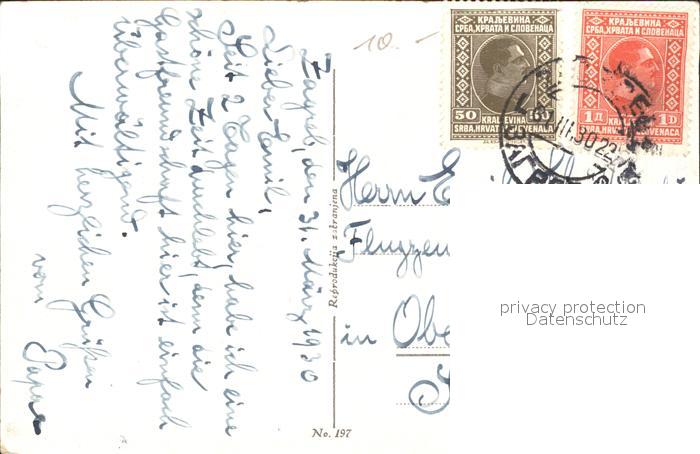 Zagreb, den 31. März 1930
Lieber Emil,
Seit 2 Tagen hier, habe ich eine
schöne Zeit durchlebt, denn die
Gastfreundschaft hier ist einfach
überwältigend.
Mit herzlichen Grüßen
vom
Papa
Reprodukcija zabranjena
No. 197
10.-
КРАЉЕВИНА
СРБА, ХРВАТА И СЛОВЕНАЦА
50
KRALJEVINA
SRBA, HRVATA I SLOVENACA
КРАЉЕВИНА
СРБА, ХРВАТА И СЛОВЕНАЦА
1Д
1D
KRALJEVINA
SRBA, HRVATA I SLOVENACA
III.30.22
Herrn
Flugzeu
in Obe
privacy protection
Datenschutz